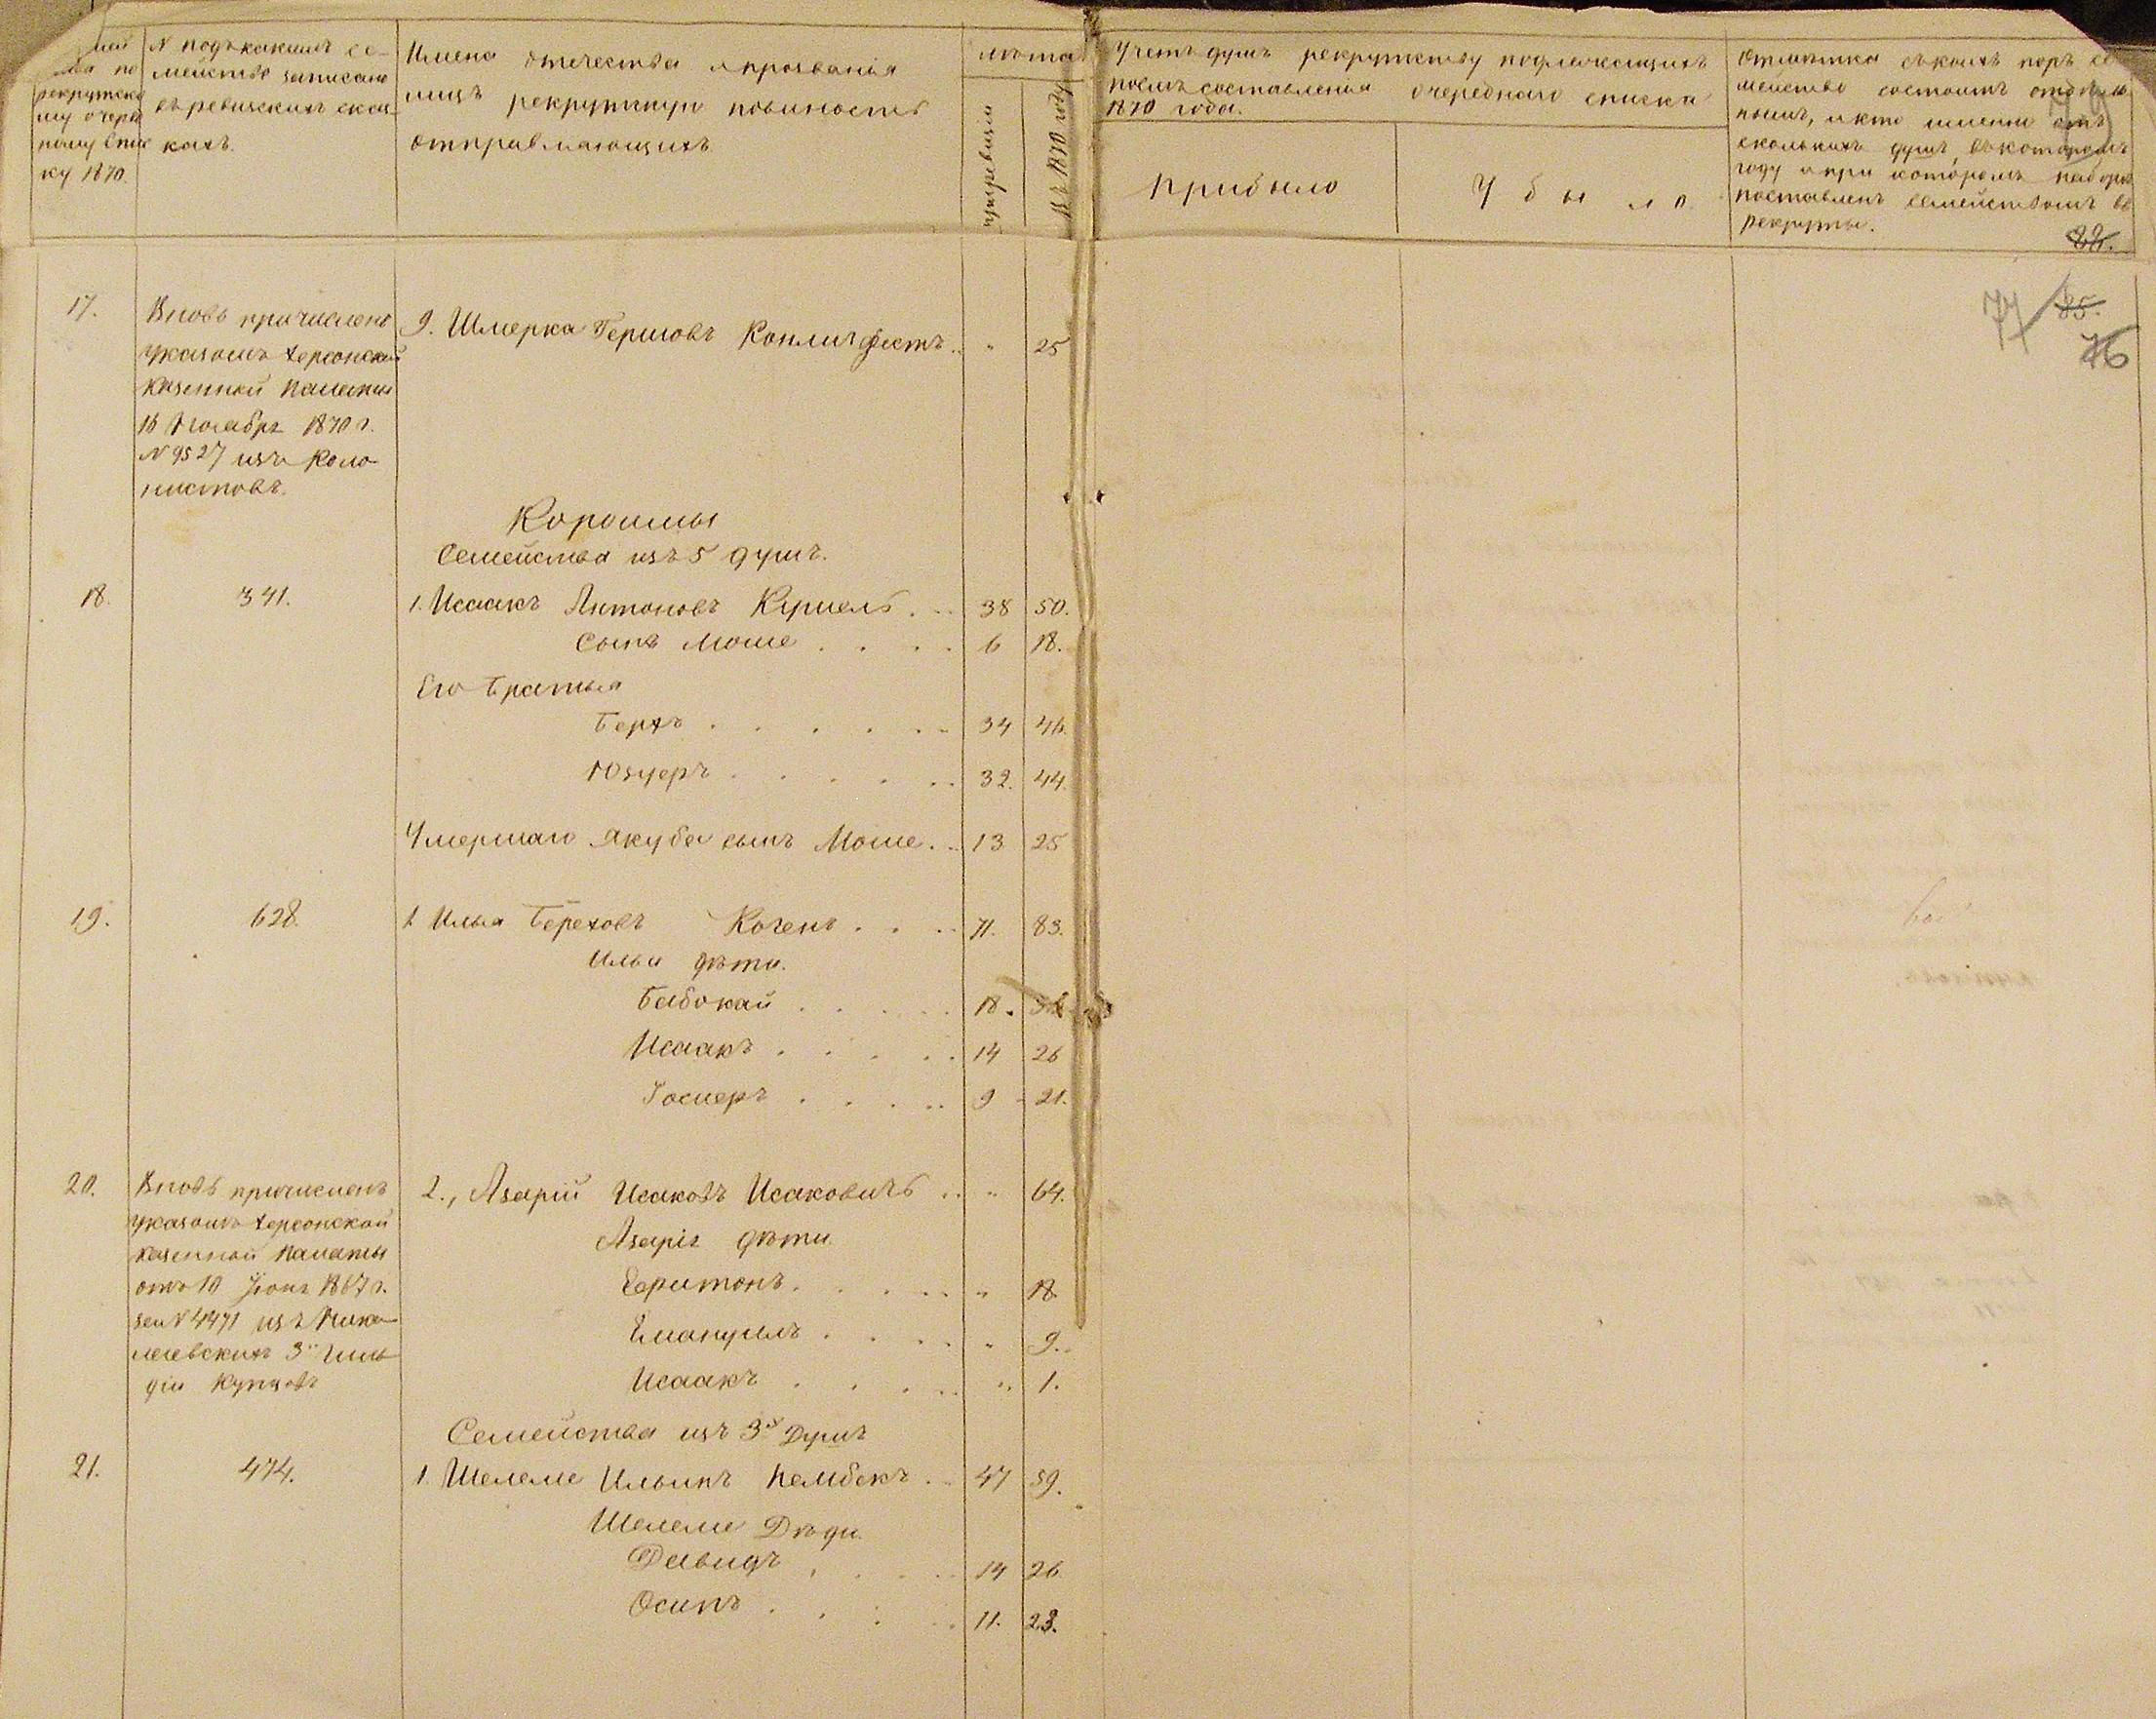 по
рекрутско
му очеред
ному спис
ку 1870.
№ подъ какимъ се-
мейство записано
въ ревизскихъ сказ-
кахъ.
Имена отчества и прозванія
лицъ рекрутскую повиность
отправляющихъ.
лѣта
по ревизіи
въ 1870 году
Учетъ душъ рекрутству подлежащихъ
послѣ составленія очереднаго списка
1870 года.
Прибыло
Убыло
Отмѣтка съ коихъ поръ се
мейство состоитъ отдѣль
нымъ, и кто именно отъ
сколькихъ душъ, въ которомъ
году и при которомъ наборѣ
поставленъ семействомъ въ
рекруты.
77
85.
76
17.
Вновь причисленъ
указомъ Херсонской
Казенной Палаты
16 Ноября 1870 г.
№ 9527 изъ Коло-
нистовъ.
9. Шмерка Гершовъ Копличфестъ .. " 25
Караимы
Семейства изъ 5 душъ.
18. 341. 1. Исаакъ Антоновъ Куршелъ . .. 38 50.
Сынъ Моше . . . . 6 18.
Его братья
Берхъ . . . . . .. 34 46.
Юзуеръ . . . . . .. 32. 44.
Умершаго Якуба сынъ Моше. .. 13 25
19. 628. 1. Илья Береховъ Когенъ . . .. 71. 83.
Ильи дѣти.
Бабокай . . . . . 18.
Исаакъ . . . . .. 14 26
Іосиеръ . . . . .. 9 21.
20.
Вновь причисленъ
указомъ Херсонской
казенной Палаты
отъ 10 Іюня 1867 г.
за № 4471 изъ Нико-
лаевскихъ 3й Гиль
діи Купцовъ
2., Азарій Исаковъ Исаковичъ .. " 64.
Азарія дѣти
Харитонъ . . . . .. " 18.
Емануилъ . . . . . " 9..
Исаакъ . . . .. " 1.
Семейства изъ 3хъ Душъ
21. 474. 1. Шелеме Ильинъ Пембекъ . .. 47 59.
Шелеме Дѣти.
Давидъ , . . .. 14 26.
Осипъ . . . .. 11. 23.